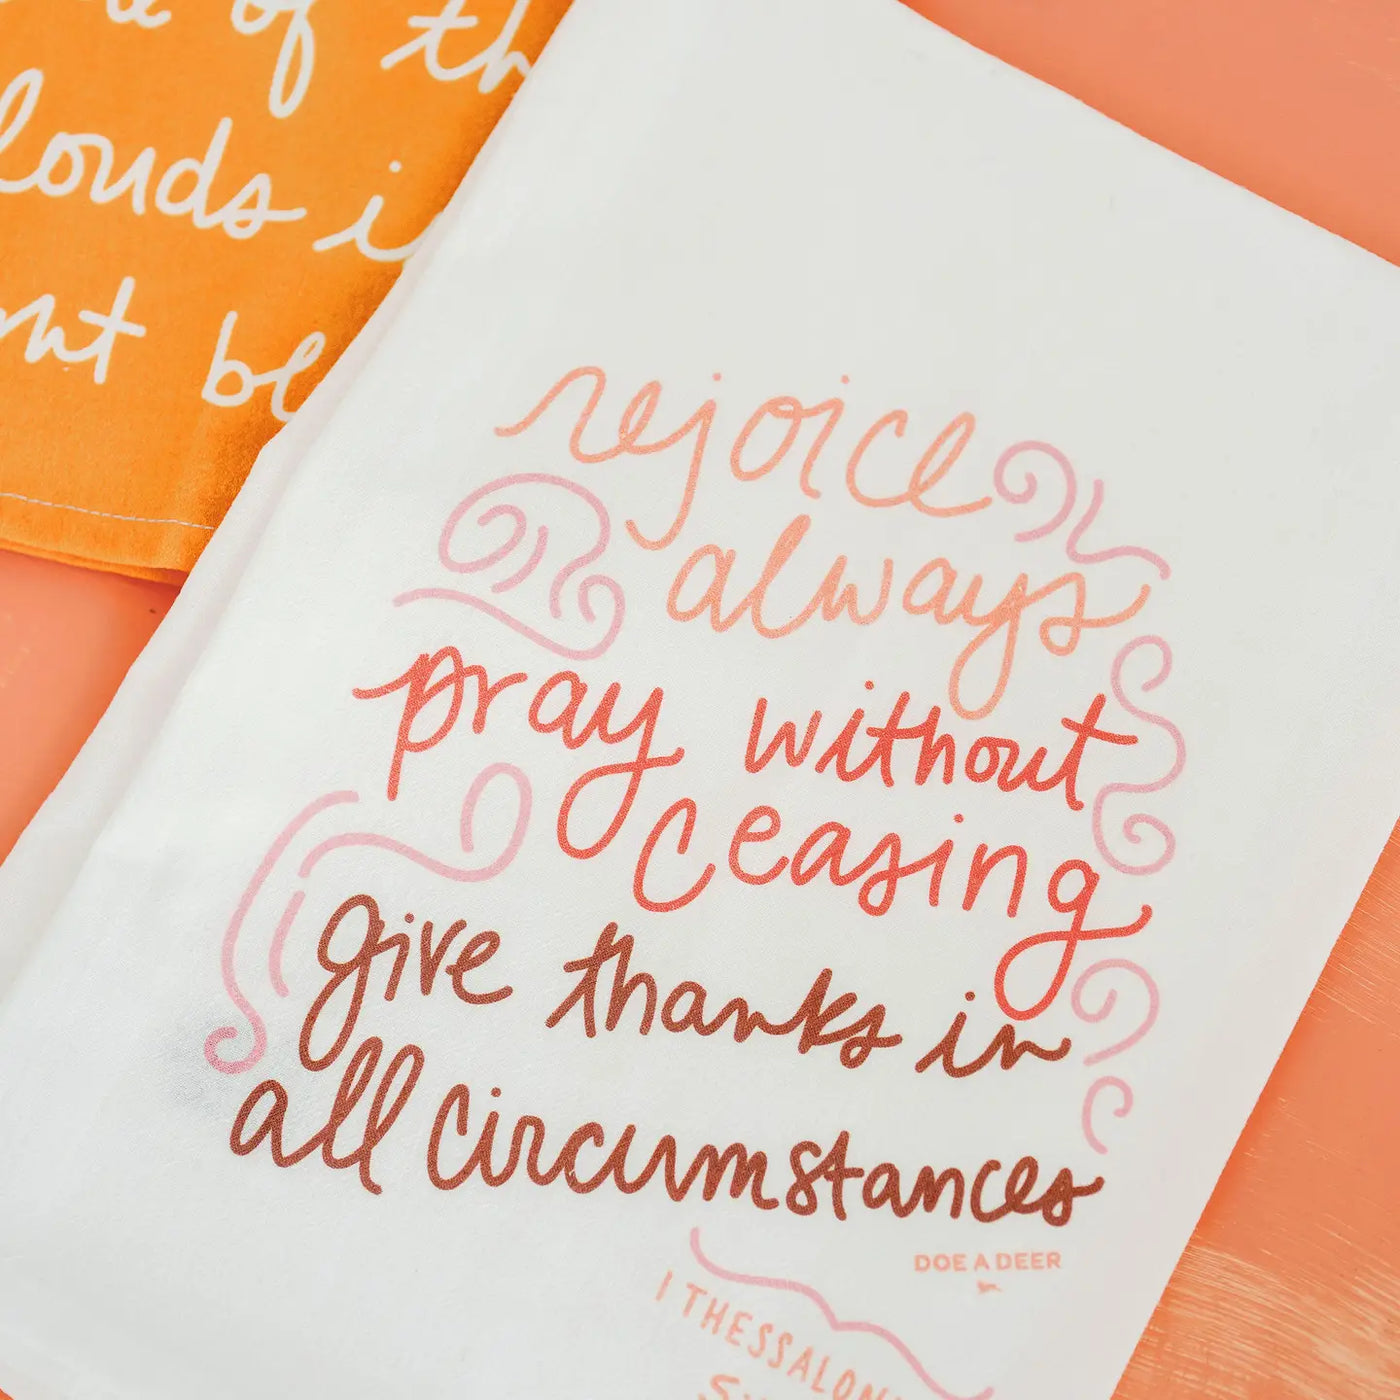 of th
louds i
nt be
rejoice
always
pray without
ceasing
give thanks in
all circumstances
DOE A DEER
I THESSALON